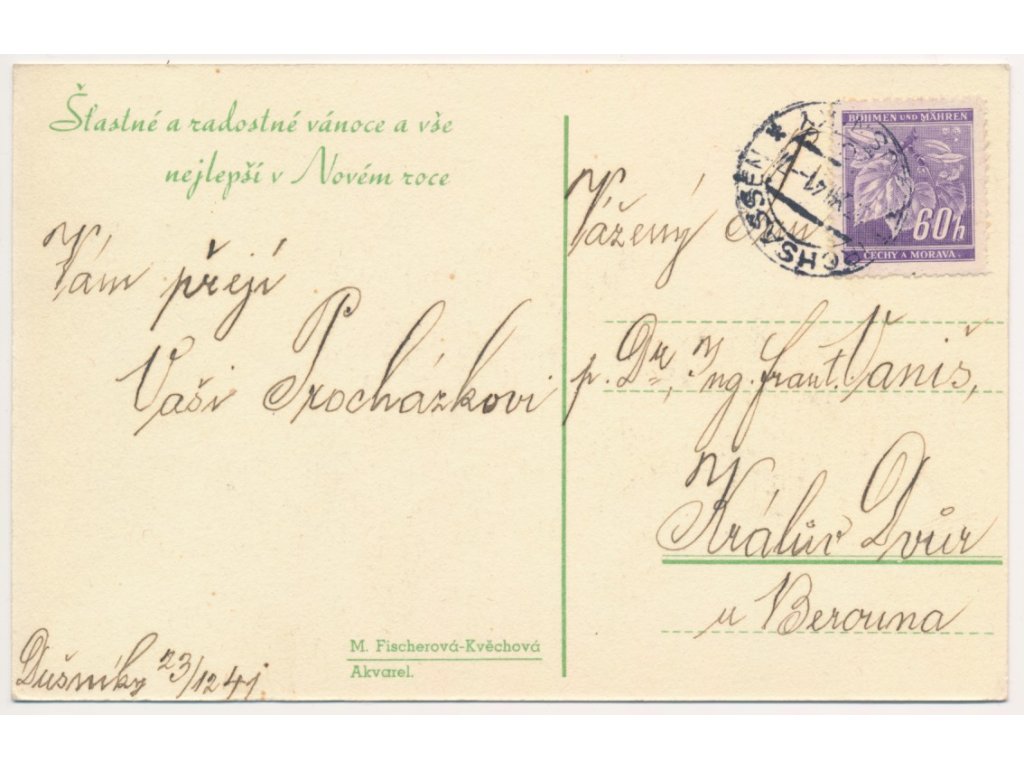 Šťastné a radostné vánoce a vše
nejlepší v Novém roce
Vám přejí
Vaši Procházkovi
Dušníky 23/12 41
M. Fischerová-Kvěchová
Akvarel.
BÖHMEN UND MÄHREN
60h
ČECHY A MORAVA
41
Vážený
p. Dr. Ing. Frant. Vaniš,
Králův Dvůr
u Berouna